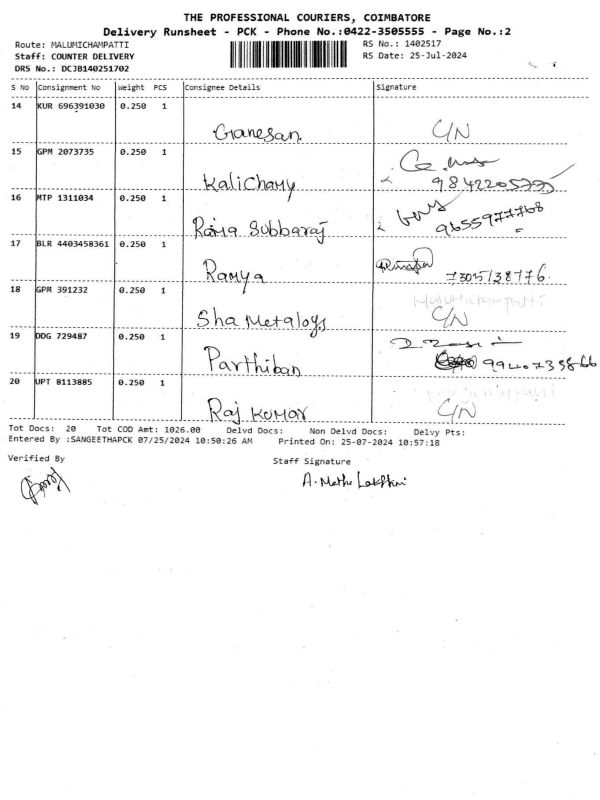 THE PROFESSIONAL COURIERS, COIMBATORE
Delivery Runsheet - PCK - Phone No.:0422-3505555 - Page No.:2
Route: MALUMICHAMPATTI RS No.: 1402517
Staff: COUNTER DELIVERY RS Date: 25-Jul-2024
DRS No.: DCJB140251702
S No Consignment No Weight PCS Consignee Details Signature
14 KUR 696391030 0.250 1
Ganesan C/N
15 GPM 2073735 0.250 1
Kalichamy 9842205775
16 MTP 1311034 0.250 1
Rama Subbaraj 9655977768
17 BLR 4403458361 0.250 1
Ramya 7305138776
18 GPM 391232 0.250 1 Malumichampatti
Sha Metaloys C/N
19 DDG 729487 0.250 1
Parthiban 9940735866
20 UPT 8113885 0.250 1
Raj Kumar C/N
Tot Docs: 20 Tot COD Amt: 1026.00 Delvd Docs: Non Delvd Docs: Delvy Pts:
Entered By :SANGEETHAPCK 07/25/2024 10:50:26 AM Printed On: 25-07-2024 10:57:18
Verified By Staff Signature
A. Muthu Lakshmi